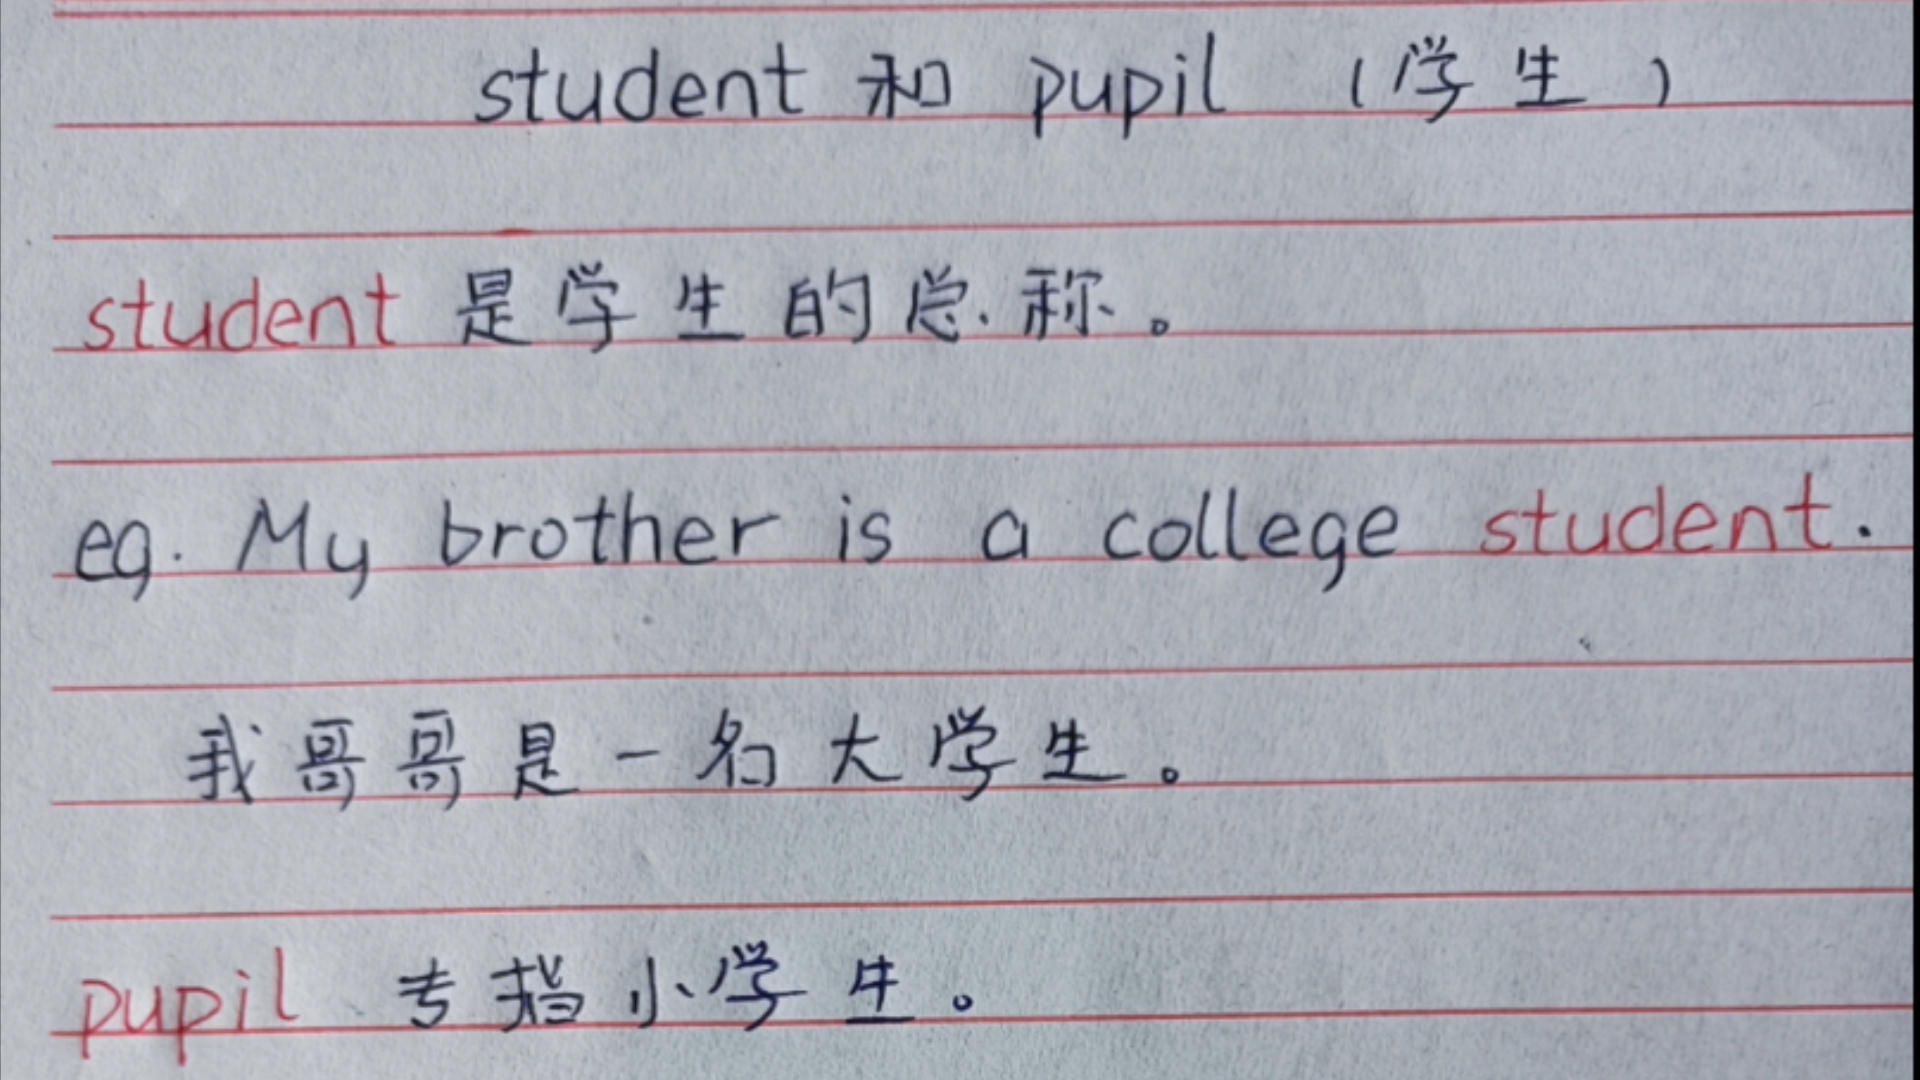 student 和 pupil （学生）
student 是学生的总称。
eg. My brother is a college student.
我哥哥是一名大学生。
pupil 专指小学生。